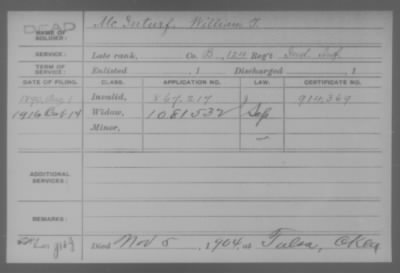 DEAD
NAME OF SOLDIER: McInturf, William T.
SERVICE: Late rank, Co. B, 124 Reg't Ind. Inf.
TERM OF SERVICE: Enlisted , 1 Discharged , 1
DATE OF FILING. CLASS. APPLICATION NO. LAW. CERTIFICATE NO.
Aug. 1 Invalid, 867.217 914.369
1916 Oct. 14 Widow, 1081532 Sep
Minor,
ADDITIONAL SERVICES:
REMARKS:
Died Nov 5, 1904, at Tulsa, Okla